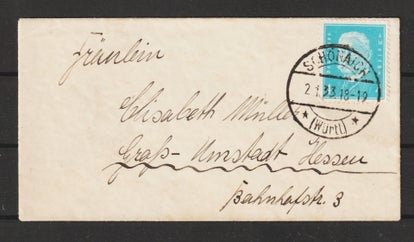 Fräulein
SCHÖNAICH
2.1.33.18-19
(Württ)
Elisabeth Müller
Groß-Umstadt Hessen
Bahnhofstr. 3